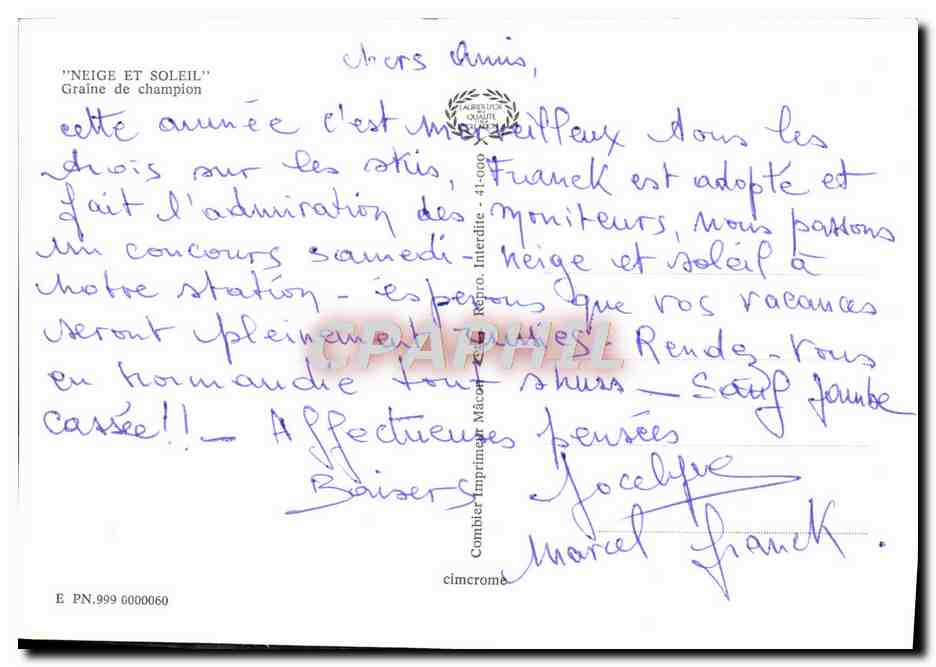 chers Amis,
"NEIGE ET SOLEIL"
Graine de champion
LAURIER D'OR
DE LA
QUALITE
cette année c'est merveilleux tous les
trois sur les skis, Franck est adopté et
fait l'admiration des moniteurs, nous passons
un concours samedi - neige et soleil à
notre station - espérons que vos vacances
seront pleinement réussies - Rendez-vous
en Normandie tout - Sauf jambe
cassée!! - Affectueuses pensées
Baisers Jocelyne
Marcel Franck.
Combier Imprimeur Mâcon Repro. Interdite - 41-000
CPAPHIL
cimcrome
E PN.999 0000060